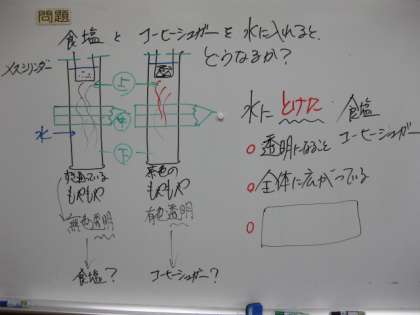 問題
食塩とコーヒーシュガーを水に入れると、
どうなるか?
メスシリンダー
上
中
下
水
茶色の
モヤモヤ
モヤモヤ
無色透明
有色透明
食塩?
コーヒーシュガー?
水にとけた 食塩
コーヒーシュガー
透明になること
全体に広がっている